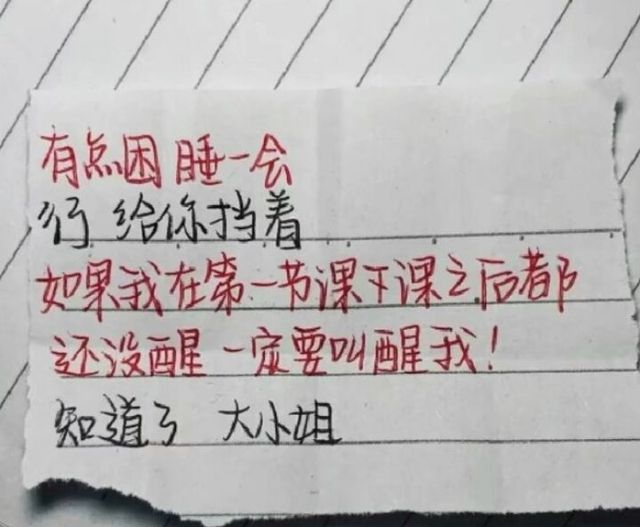 有点困 睡一会
行 给你挡着
如果我在第一节课下课之后都
还没醒 一定要叫醒我！
知道了 大小姐